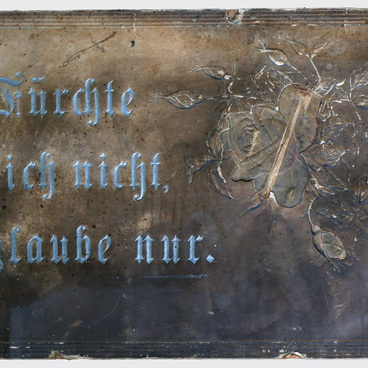 Fürchte
ich nicht,
glaube nur.